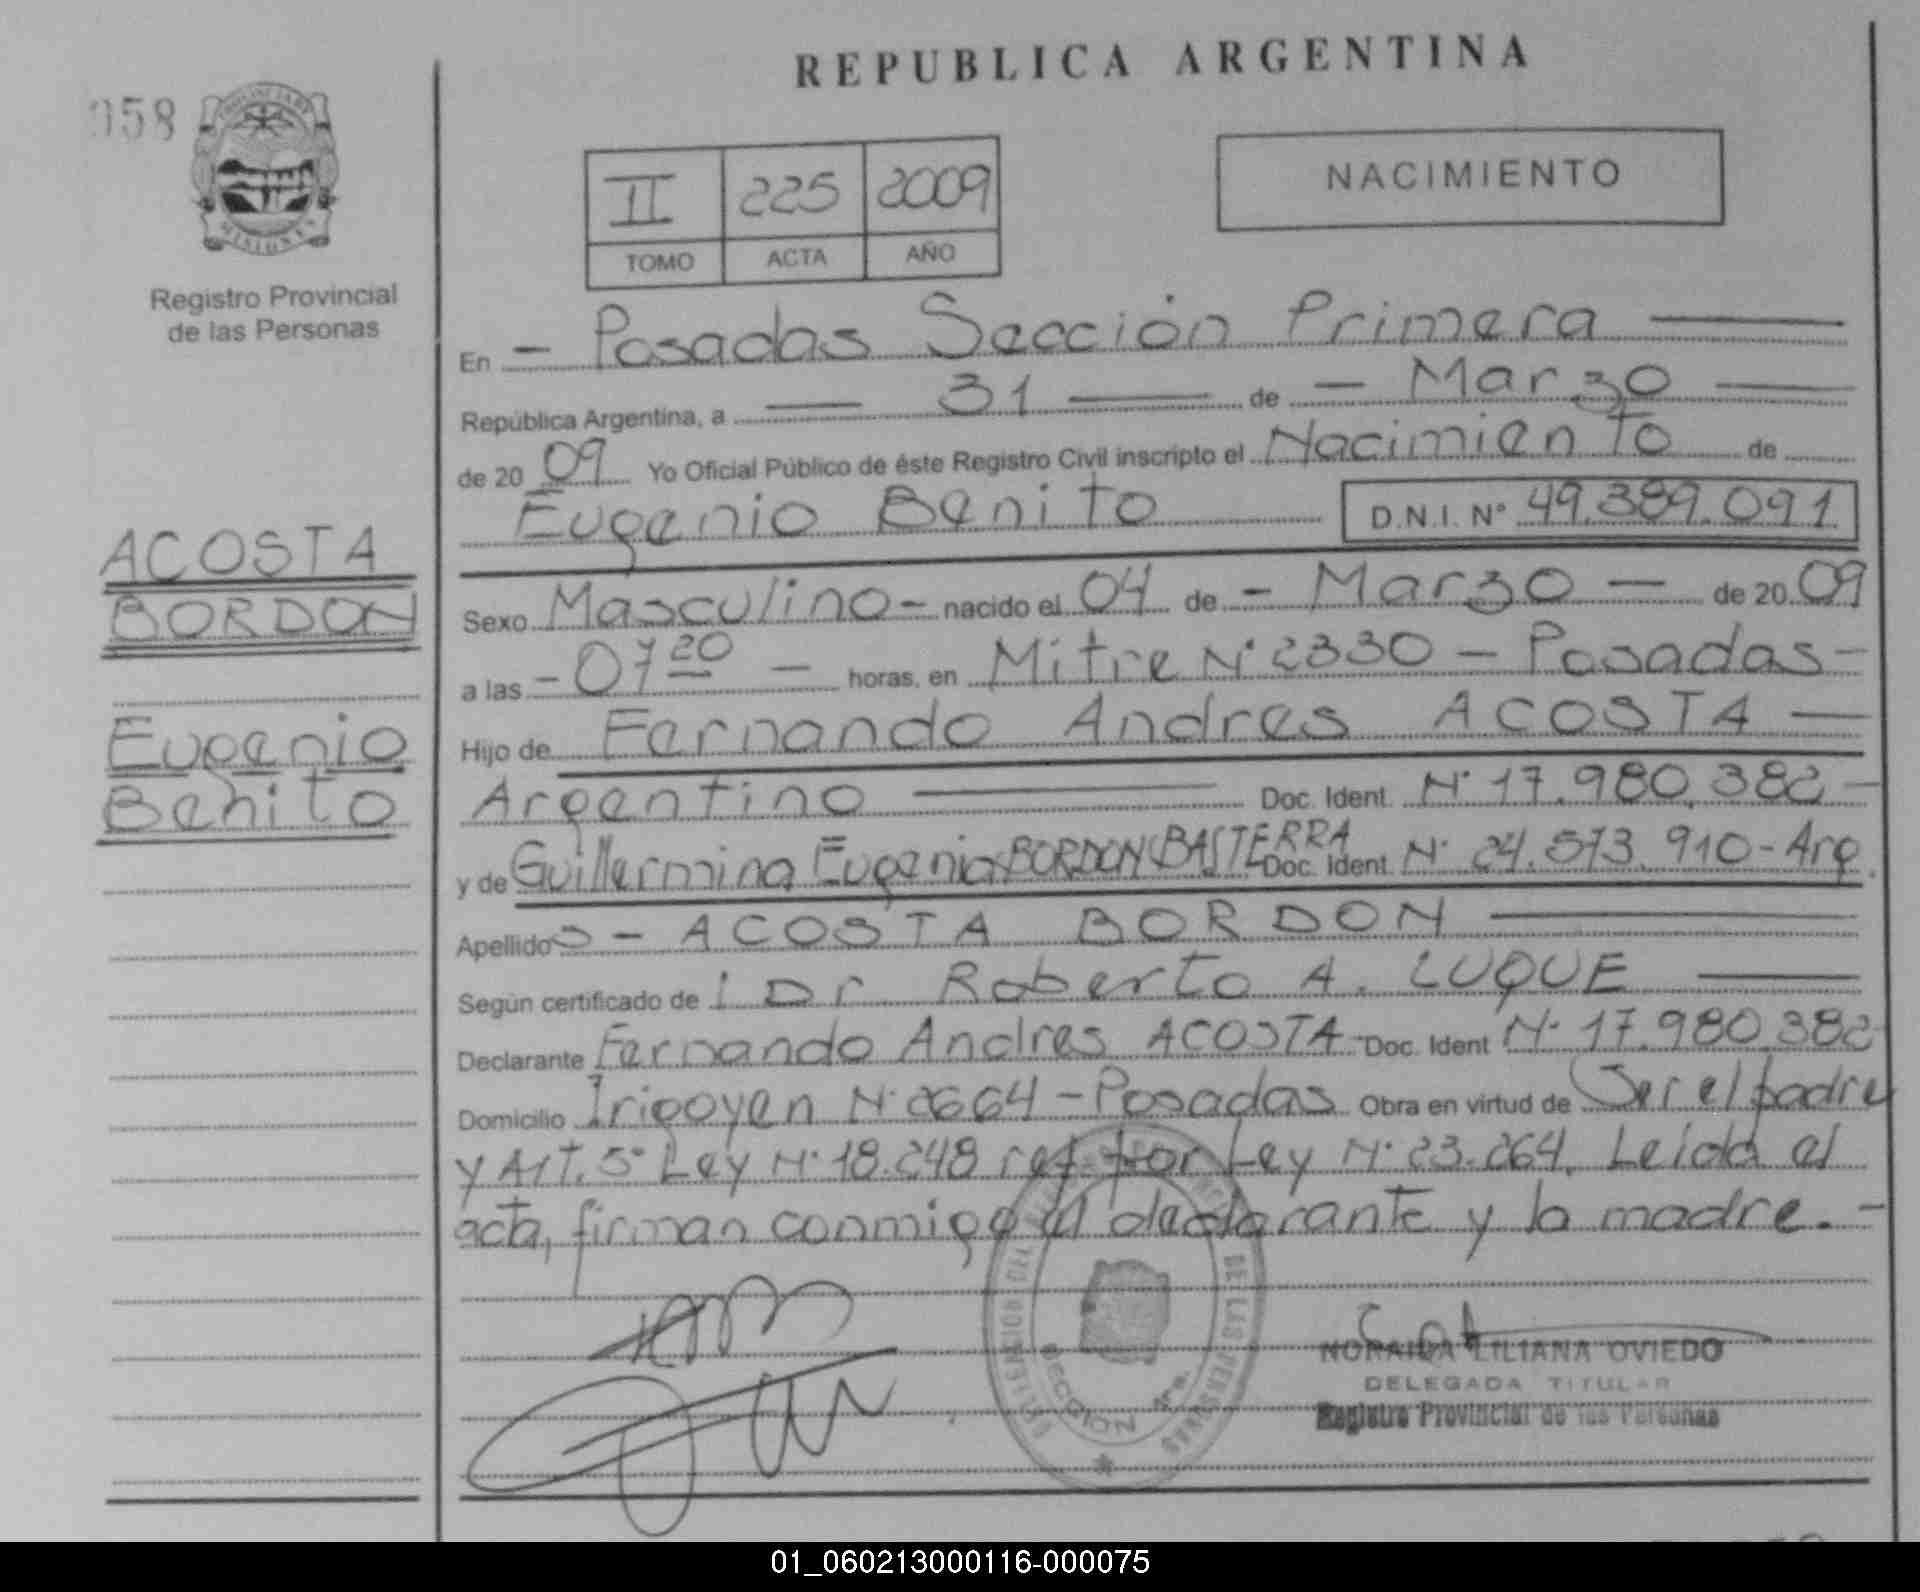 REPUBLICA ARGENTINA
058
PROVINCIA DE
MISIONES
II 225 2009
TOMO ACTA AÑO
NACIMIENTO
Registro Provincial
de las Personas
En - Posadas Sección Primera
República Argentina, a 31 de - Marzo
de 20 09 Yo Oficial Público de éste Registro Civil inscripto el Nacimiento de
Eugenio Benito D.N.I. Nº 49.389.091
ACOSTA
BORDON
Eugenio
Benito
Sexo Masculino - nacido el 04 de - Marzo - de 20 09
a las - 07 20 - horas, en Mitre Nº 2330 - Posadas -
Hijo de Fernando Andres ACOSTA
Argentino Doc. Ident. Nº 17.980.382 -
y de Guillermina Eugenia BORDON BASTERRA Doc. Ident. Nº 24.573.910 - Arg.
Apellidos - ACOSTA BORDON
Según certificado de l Dr Roberto A. LUQUE
Declarante Fernando Andres ACOSTA - Doc. Ident Nº 17.980.382
Domicilio Irigoyen Nº 2664 - Posadas Obra en virtud de Ser el padre
y Art. 5º Ley Nº 18.248 ref por Ley Nº 23.264. Leida el
acta, firman conmigo el declarante y la madre. -
DE LAS PERSONAS
SECCION 1ra.
NORAIDA LILIANA OVIEDO
DELEGADA TITULAR
Registro Provincial de las Personas
01_060213000116-000075